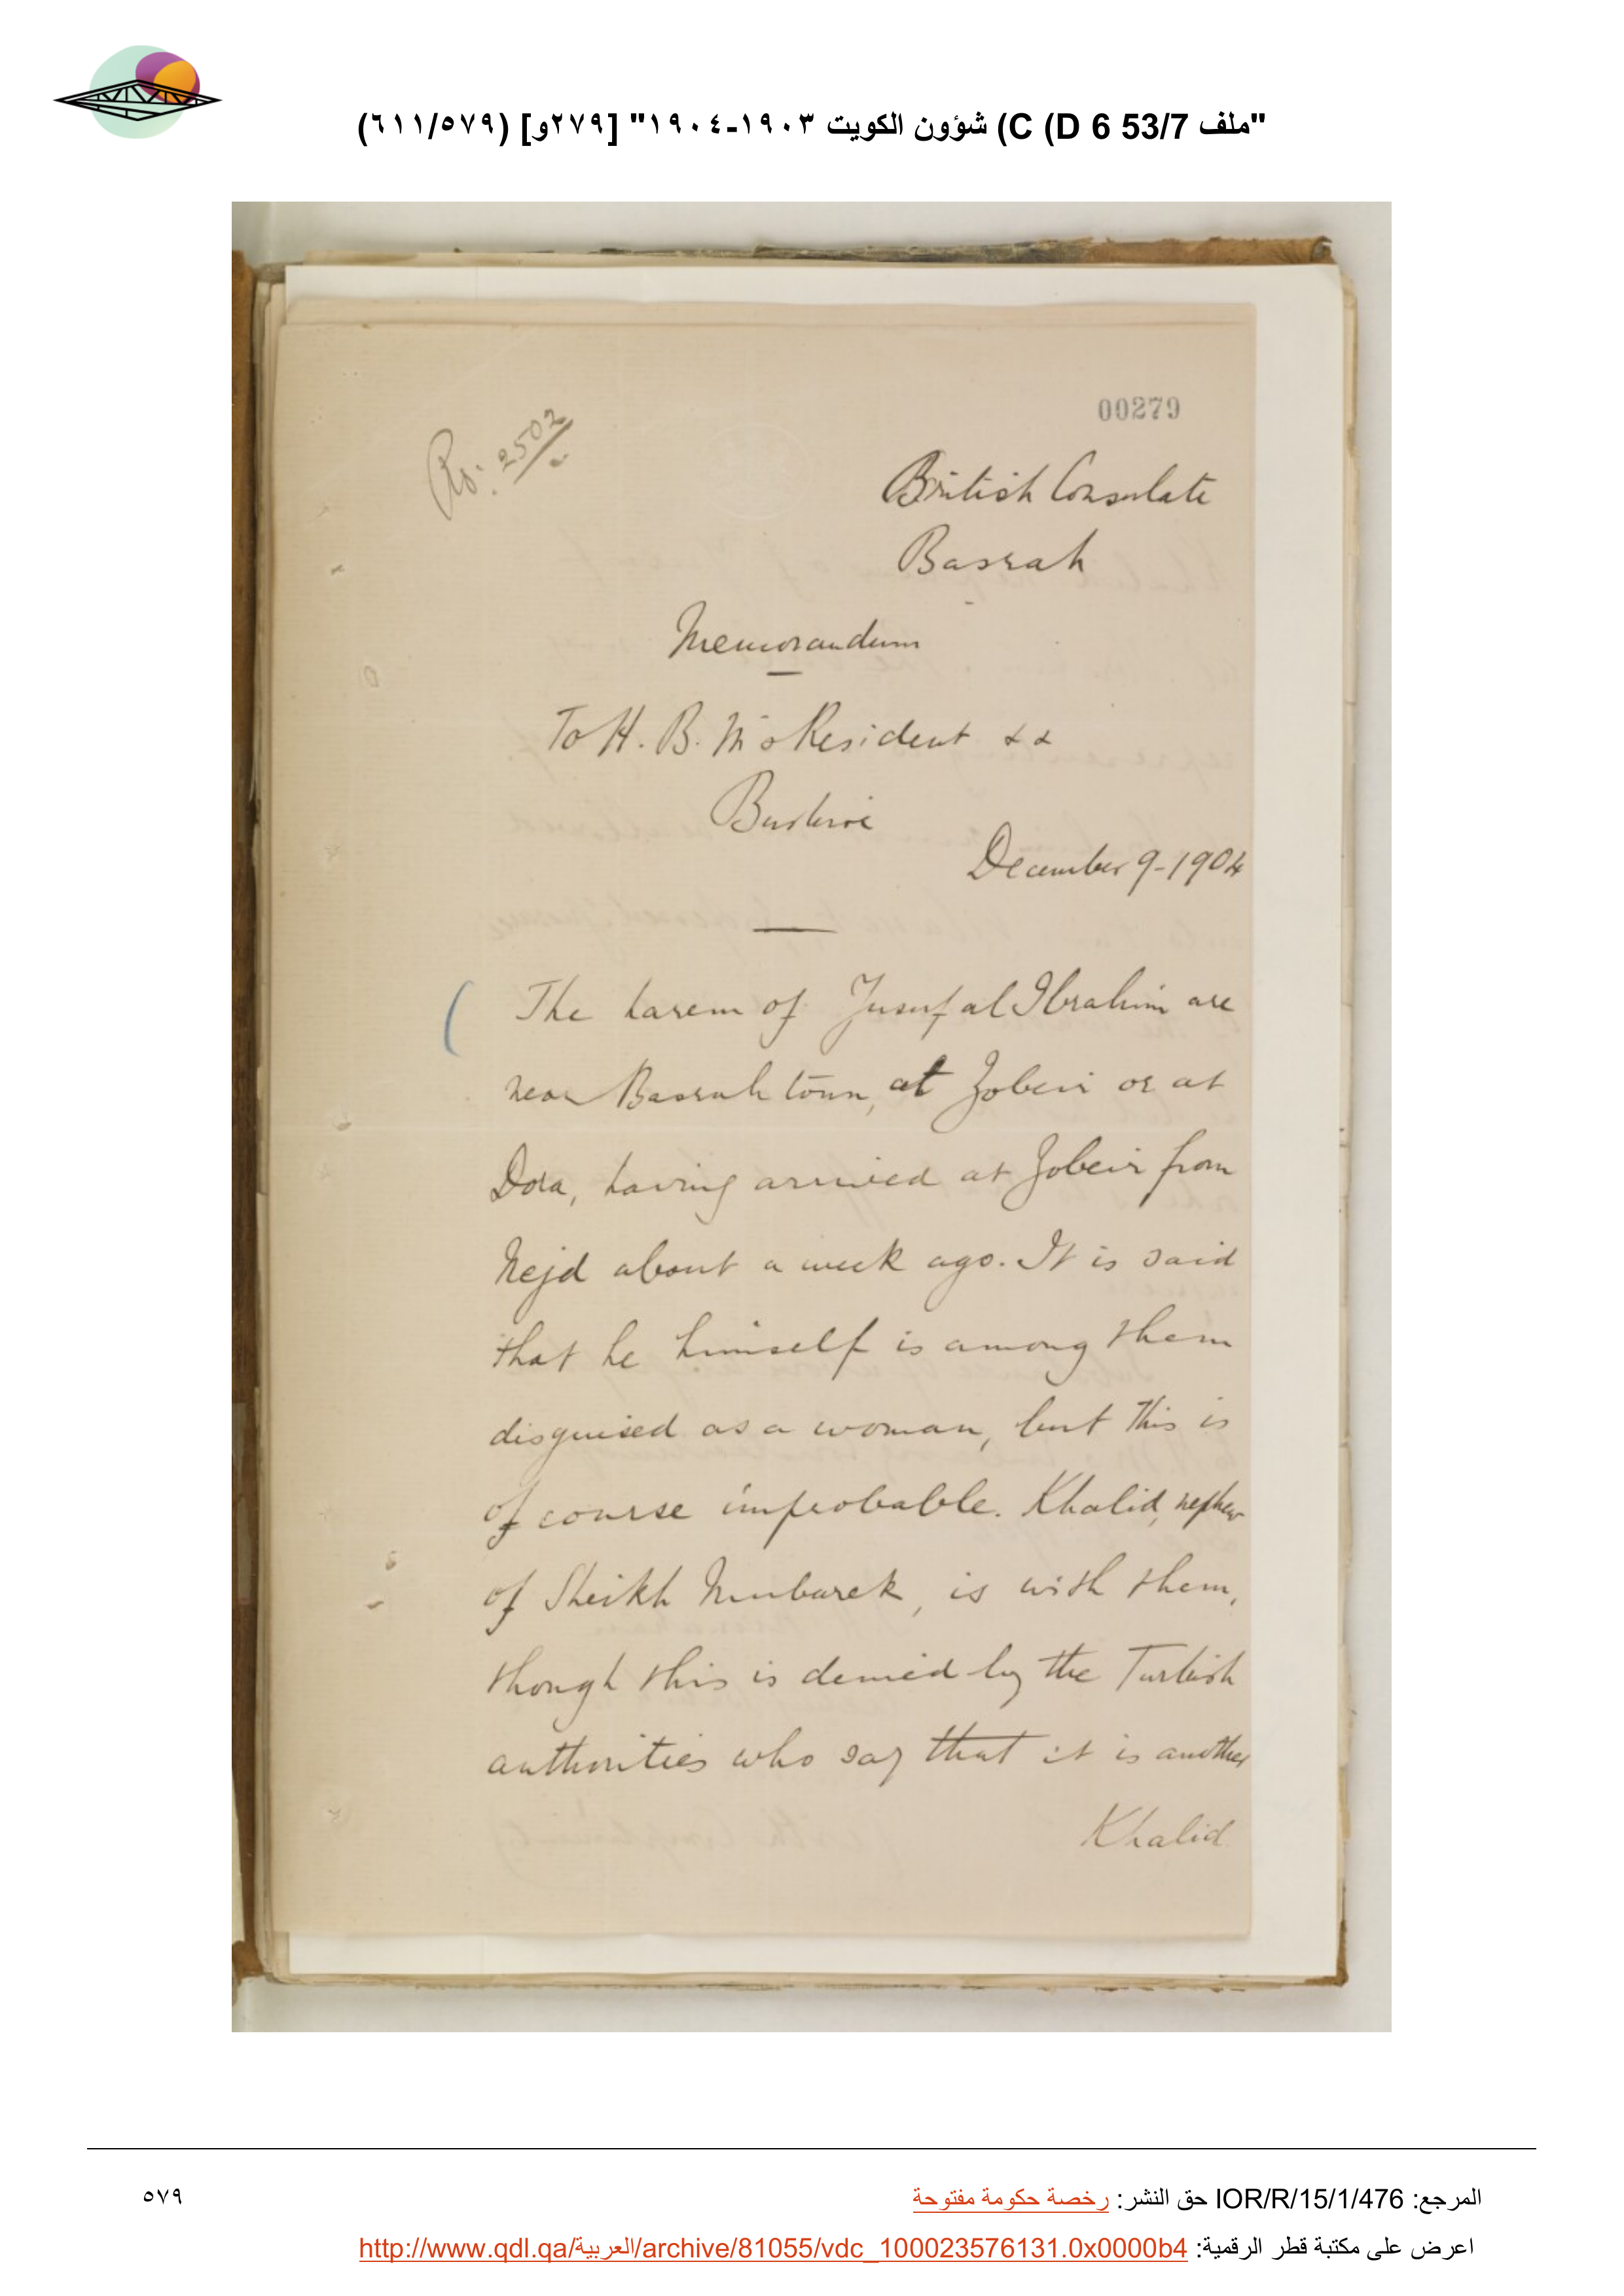 "ملف 53/7 C (D 6) شؤون الكويت ١٩٠٣-١٩٠٤" [٢٧٩و] (٦١١/٥٧٩)
00279
Rs: 2502
British Consulate
Basrah
Memorandum
To H. B. M's Resident &&
Bushire
December 9-1904
The harem of Yusuf al Ibrahim are
near Basrah town, at Zobeir or at
Dora, having arrived at Zobeir from
Nejd about a week ago. It is said
that he himself is among them
disguised as a woman, but this is
of course improbable. Khalid, nephew
of Sheikh Mubarek, is with them,
though this is denied by the Turkish
authorities who say that it is another
Khalid
المرجع: IOR/R/15/1/476 حق النشر: رخصة حكومة مفتوحة
٥٧٩
اعرض على مكتبة قطر الرقمية: http://www.qdl.qa/العربية/archive/81055/vdc_100023576131.0x0000b4